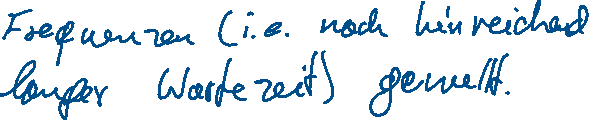 Frequenzen (i.e. nach hinreichend
langer Wartezeit) gemellt.